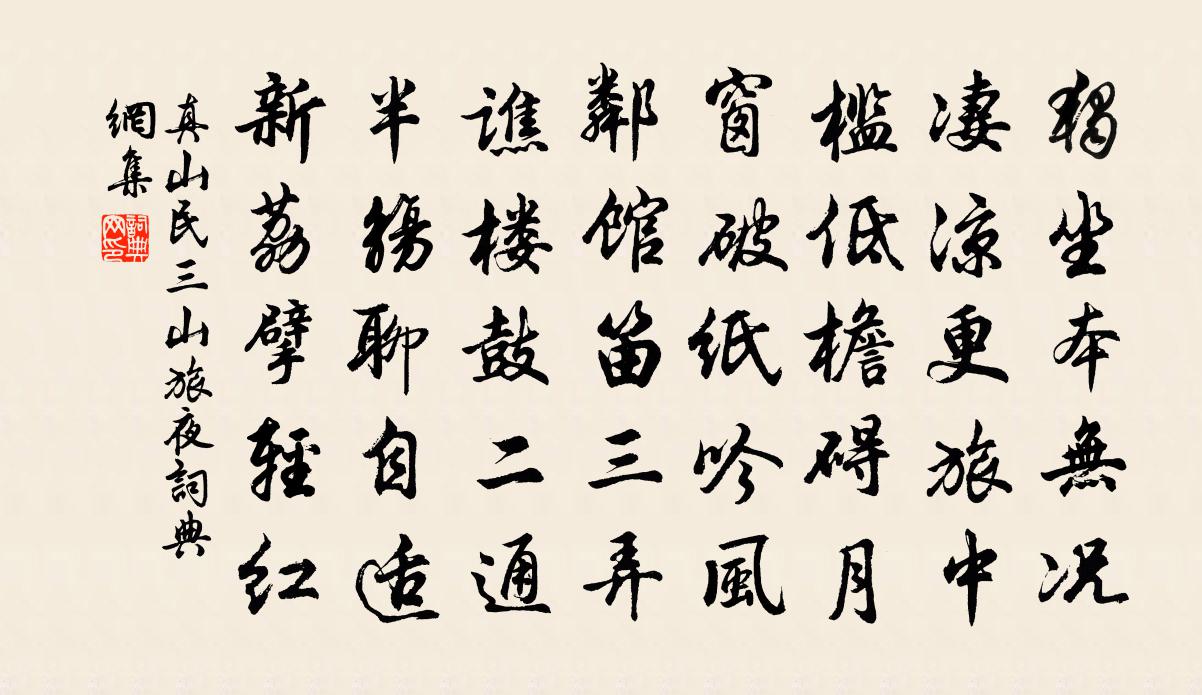 獨坐本無况
凄涼更旅中
檻低檐碍月
窗破紙吟風
鄰館笛三弄
譙楼鼓二通
半觴聊自适
新荔擘輕紅
真山民三山旅夜詞典
網集
詞典網印